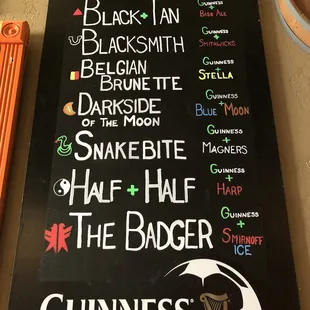 BLACK + TAN
GUINNESS
+
BASS ALE
BLACKSMITH
GUINNESS
+
SMITHWICKS
BELGIAN
BRUNETTE
GUINNESS
+
STELLA
DARKSIDE
OF THE MOON
GUINNESS
+
BLUE MOON
SNAKEBITE
GUINNESS
+
MAGNERS
HALF + HALF
GUINNESS
+
HARP
THE BADGER
GUINNESS
+
SMIRNOFF
ICE
GUINNESS